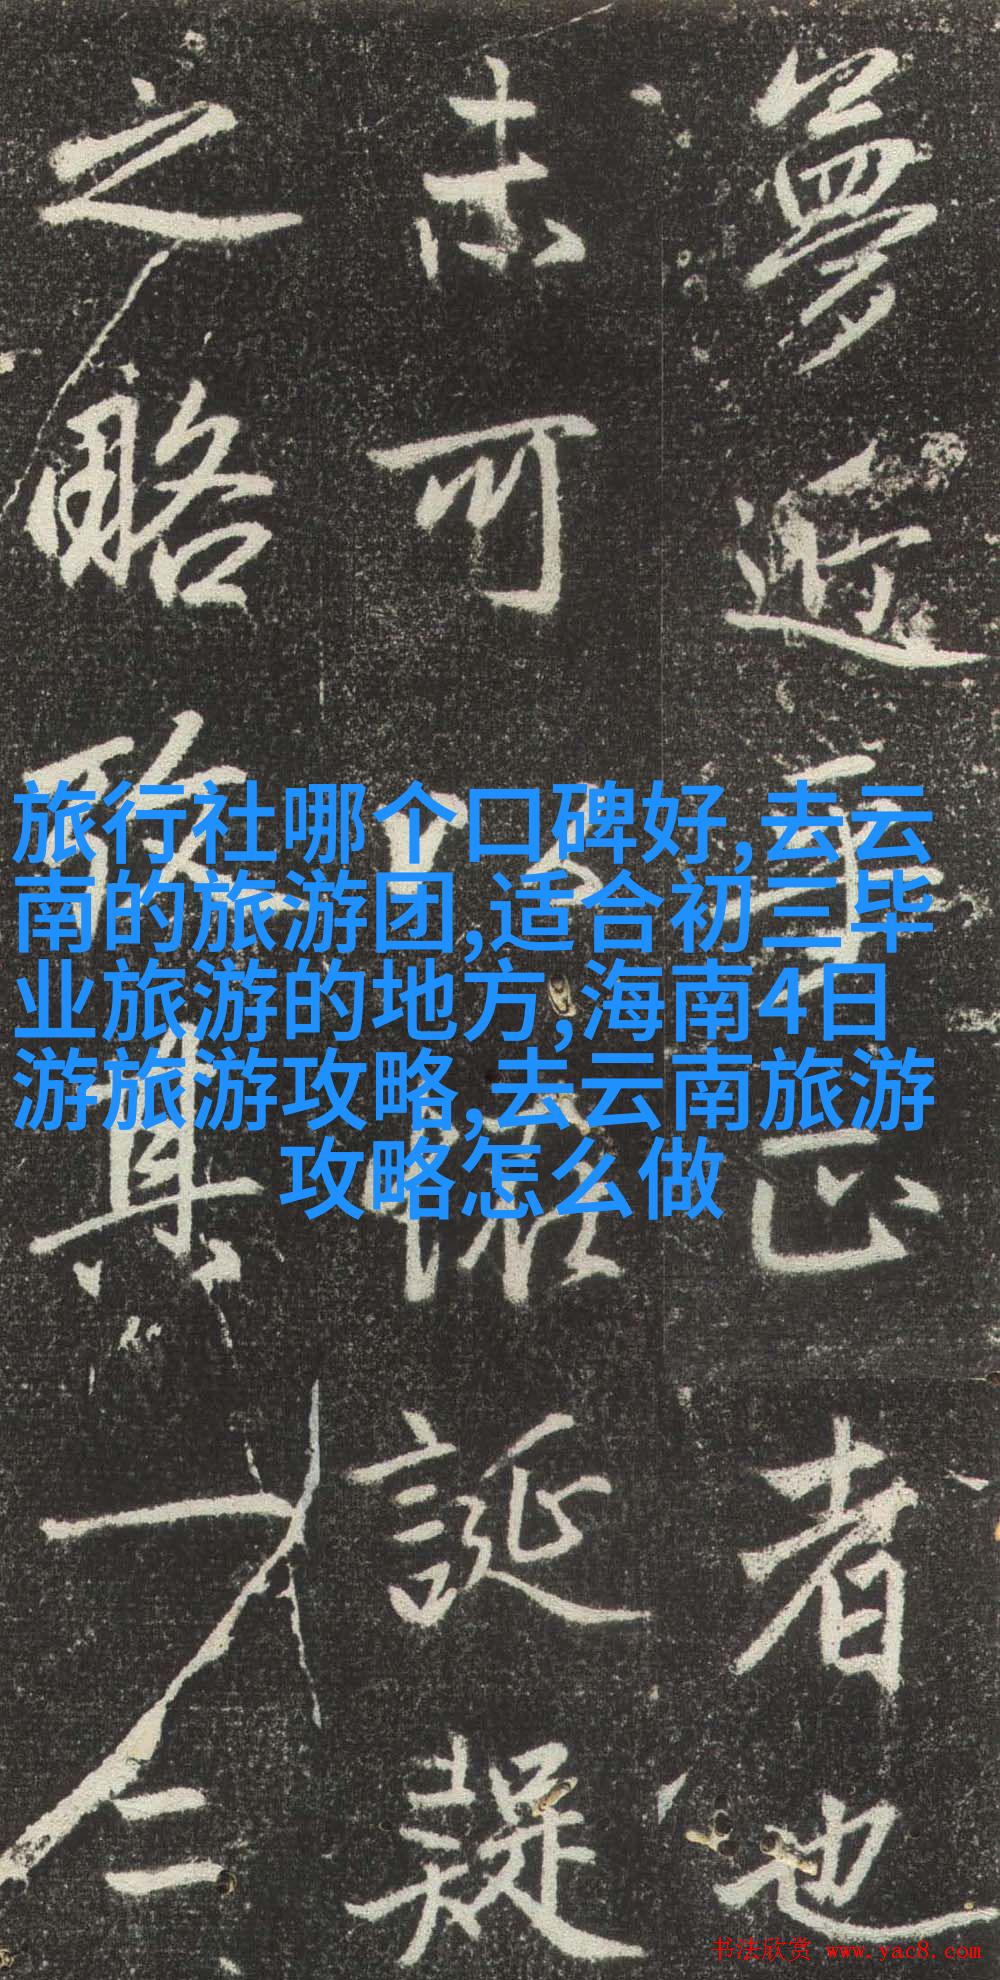 夢近事正者也
未可以怪誕疑
之略其一二
旅行社哪个口碑好,去云
南的旅游团,适合初三毕
业旅游的地方,海南4日
游旅游攻略,去云南旅游
攻略怎么做
书法欣赏 www.yac8.com